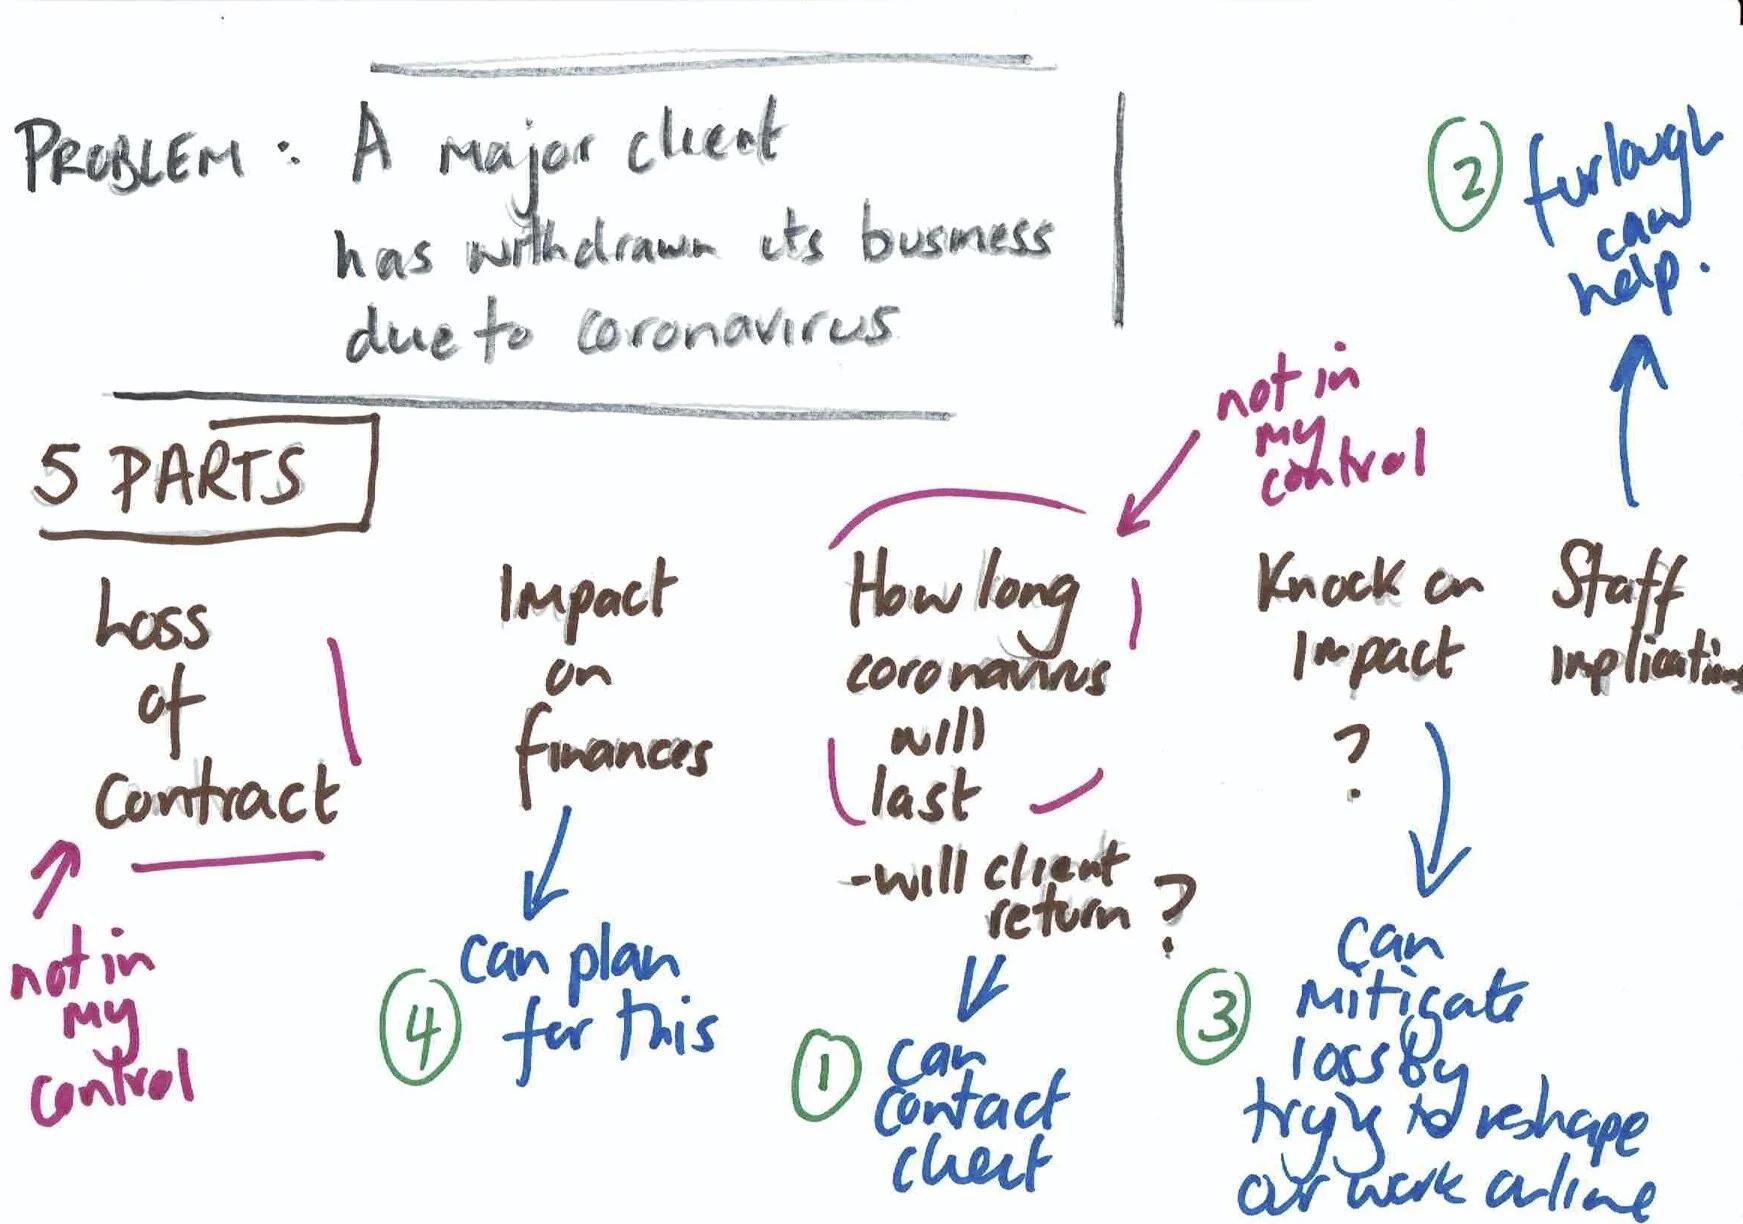 PROBLEM: A major client
has withdrawn its business
due to coronavirus
② furlough
can
help.
5 PARTS
not in
my
control
Loss
of
Contract
not in
my
control
Impact
on
finances
④ can plan
for this
How long
coronavirus
will
last
-will client
return?
① can
contact
client
Knock on
Impact
?
③ can
mitigate
loss by
tryg to reshape
our work online
Staff
implications